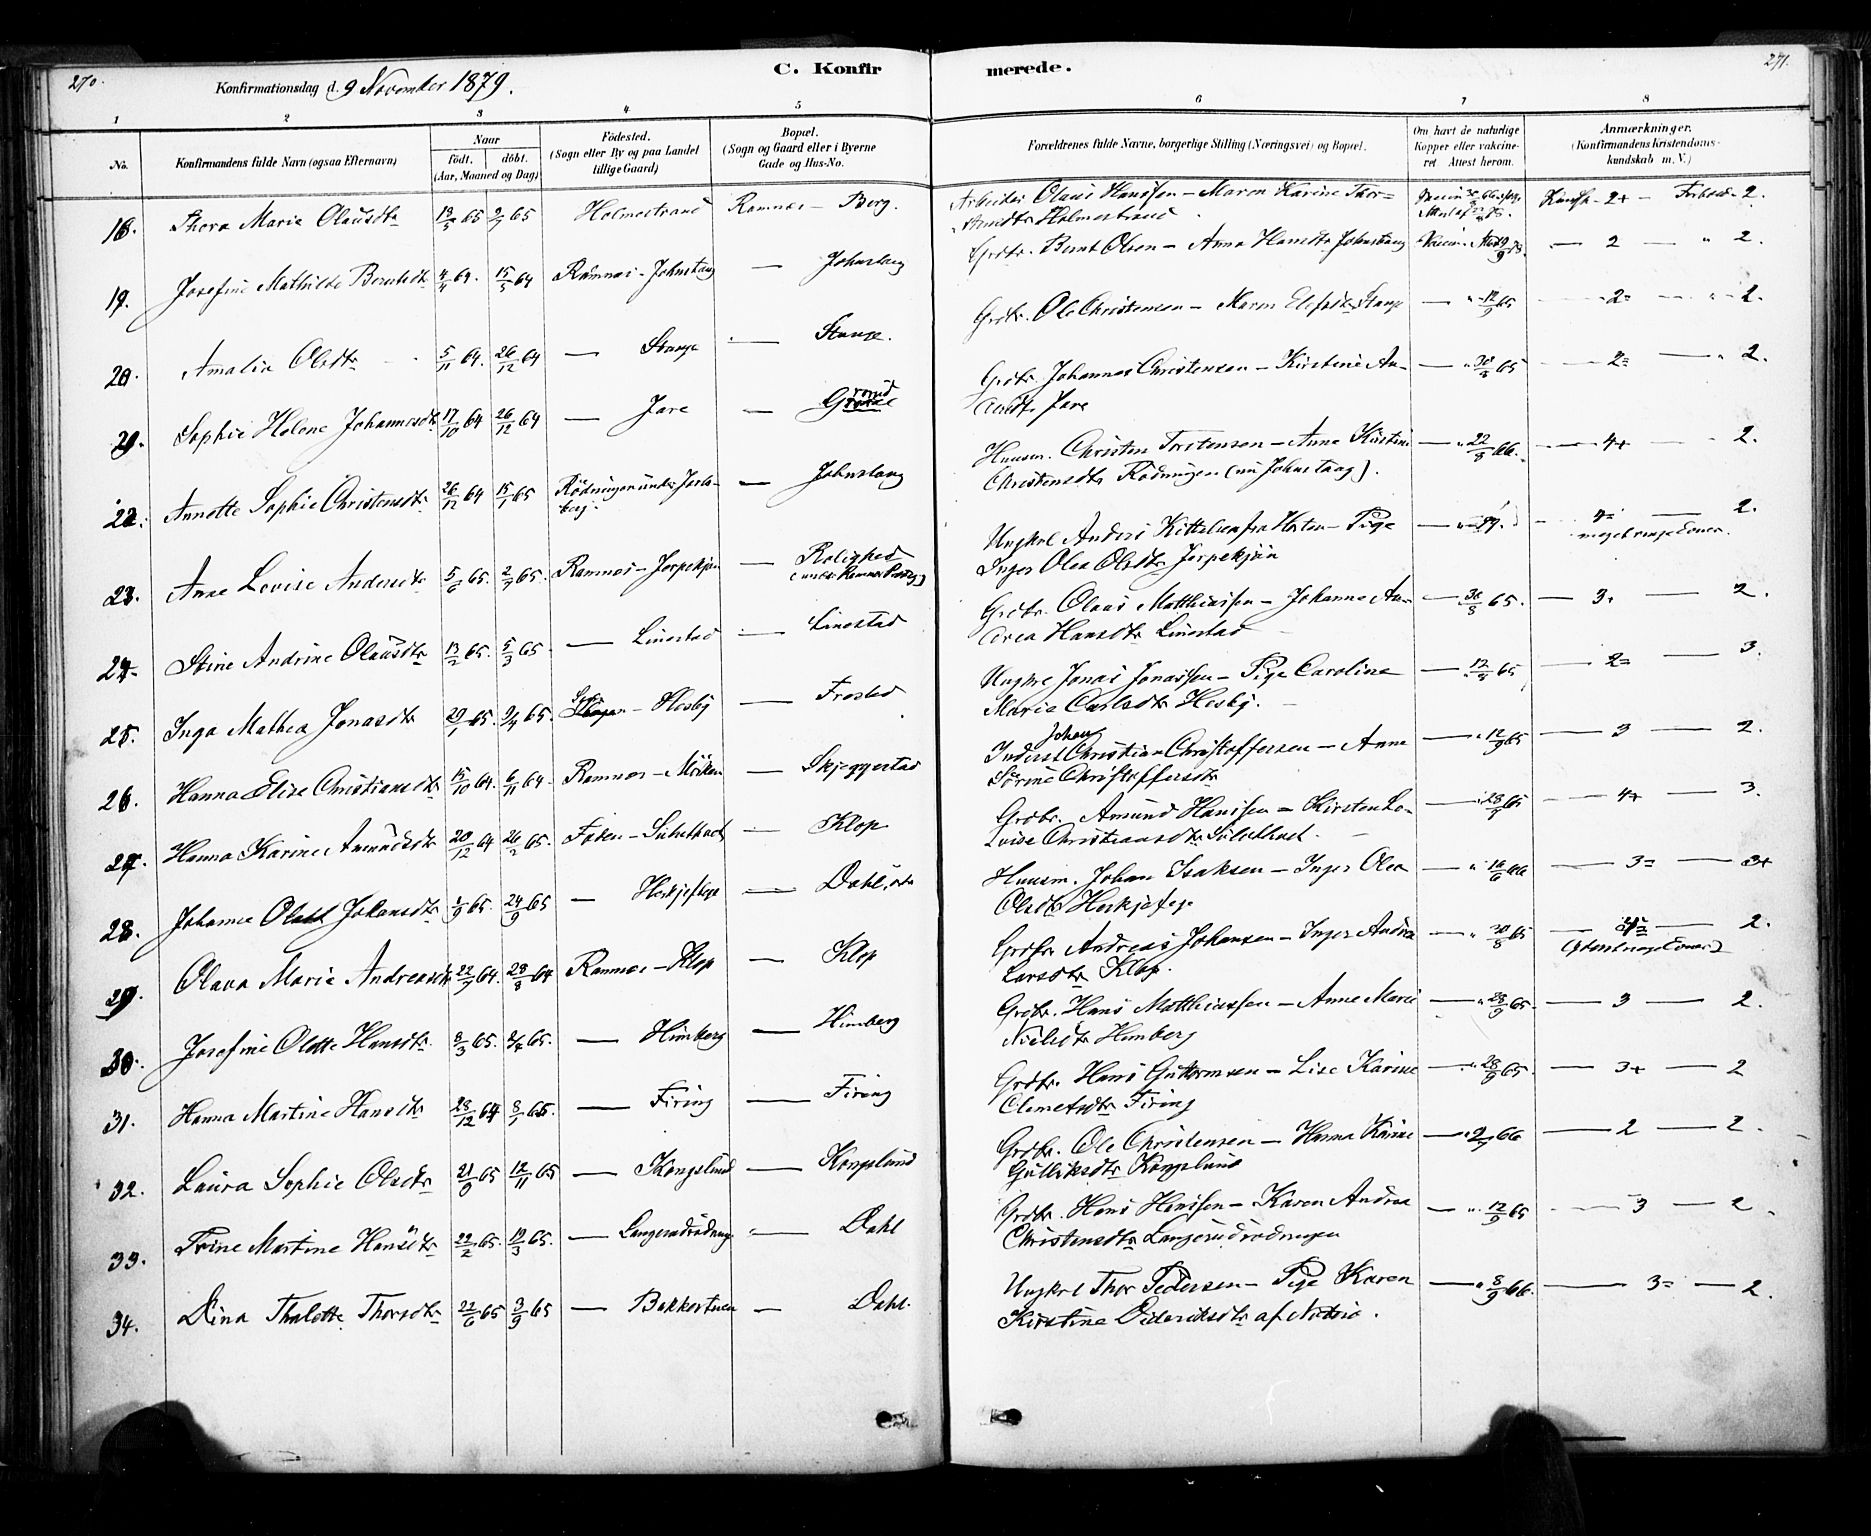 270.
Konfirmationsdag d. 9 November 1879.
C. Konfirmerede.
271.
1 2 3 4 5 6 7 8
No.
Konfirmandens fulde Navn (ogsaa Efternavn)
Naar
født. døbt.
(Aar, Maaned og Dag)
Fødested.
(Sogn eller By og paa Landet
tillige Gaard)
Bopæl.
(Sogn og Gaard eller i Byerne
Gade og Hus-No.
Forældrenes fulde Navne, borgerlige Stilling (Næringsvei) og Bopæl.
Om havt de naturlige
Kopper eller vakcine-
ret Attest herom.
Anmærkninger.
(Konfirmandens Kristendoms-
kundskab m. V.)
18. Thora Marie Olausdtr 13/5 65 2/7 65 Holmestrand Ramnæs - Berg. Arbeider Olaus Hanssen - Maren Karine Thor=
Amdtr Holmestrand Kundsk. 2+ - Forhold 2.
19. Josefine Mathilde Berntsdtr 4/4 64. 15/5 64 Ramnæs - Johnstang — Johnstang Grdbr. Bernt Olsen - Anna Hansdtr Johnstang — 2 — " 2.
20. Amalia Olsdtr 5/11 64. 26/12 64 — Stange — Stange. Grdbr. Ole Christensen - Maren Elefsdtr Stange — " 12/9 65 — 2= — " 2.
21. Sophie Helene Johannesdtr 17/10 64 26/12 64 — Jare — Grorud Grdbr. Johannes Christensen - Kirstine An-
dersdtr Jare — " 30/8 65 — 2= — " 2.
22. Annette Sophie Christensdtr 26/12 64 15/1 65 Rødningen under Jarls-
berg. — Johnstang Huusm. Christen Torstensen - Anne Kirstine
Christensdtr Rødningen (nu Johnstang). — " 22/8 66. — 4+ — " 2.
23. Anne Lovise Andersdtr 5/6 65. 2/7 65. Ramnæs - Jerpekjøn — Rolighed
(under Ramnæs Prstg) Ungkrl Anders Kittelsen fra Horten - Pige
Inger Olea Olsdtr Jerpekjøn — 4= — 2.
meget ringe Evner.
24. Stine Andrine Olausdtr 13/2 65. 5/3 65. — Linestad — Linestad Grdbr. Olaus Matthiassen - Johanne An-
drea Hansdtr Linestad — 30/8 65. — 3. — 2.
25. Inga Mathea Jonasdtr 29/1 65. 9/4 65. Sem - Hesby — Frested Ungkrl Jonas Jonassen - Pige Caroline
Marie Carlsdtr Hesby. — 12/9 65 — 2= — 3.
26. Hanna Elise Christiansdtr 15/10 64. 6/11 64. Ramnæs - Mörken — Skjeggestad Inderst Johan Christian Christoffersen - Anne
Sørine Christoffersdtr — " 12/9 65 — 3 — 2.
27. Hanna Karine Amundsdtr 20/12 64 26/2 65. Foden - — Klop Grdbr. Amund Hanssen - Kirsten Lo-
vise Christiansdtr — 4+ — 3.
28. Johanne Johansdtr 1/9 65. 24/9 65 — Dahl, Huusm. Johan Isaksen - Inger Olea
Olsdtr — " 16/6 66 — 3= — 3+
29. Olava Marie Andreasdtr 22/7 64. 28/8 64 Ramnæs - Klop — Klop Grdbr. Andreas Johansen - Inger Andrea
Larsdtr Klop. — " 30/8 65 — 4= — 2.
30. Josefine Olette Hansdtr 8/3 65. 2/4 65. — Himberg — Himberg Grdbr. Hans Matthiassen - Anne Marie
Nielsdtr Himberg — " 28/9 65. — 3 — 2.
31. Hanna Martine Hansdtr 28/12 64 8/1 65. — Firing — Firing Grdbr. Hans Guttormsen - Lise Karine
Clemetsdtr Firing — " 28/9 65. — 3+ — 2
32. Laura Sophie Olsdtr 21/9 65 12/11 65 — Kongslund — Kongslund Grdbr. Ole Christensen - Hanna Karine
Gulliksdtr Kongslund — 2/7 66 — 2 — 2.
33. Trine Martine Hansdtr 22/2 65. 19/3 65. — Langerudrødning — Dahl Grdbr. Hans Hanssen - Karen Andrea
Christensdtr Langerudrødningen — " 12/9 65 — 3 — 2.
34. Dina Thalette Thorsdtr 22/6 65 3/9 65 — Bakkestuen — Dahl. Ungkrl Thor Pedersen - Pige Karen
Kirstine Dideriksdtr af Nøtterø. — " 8/9 66. — 3= — 2.